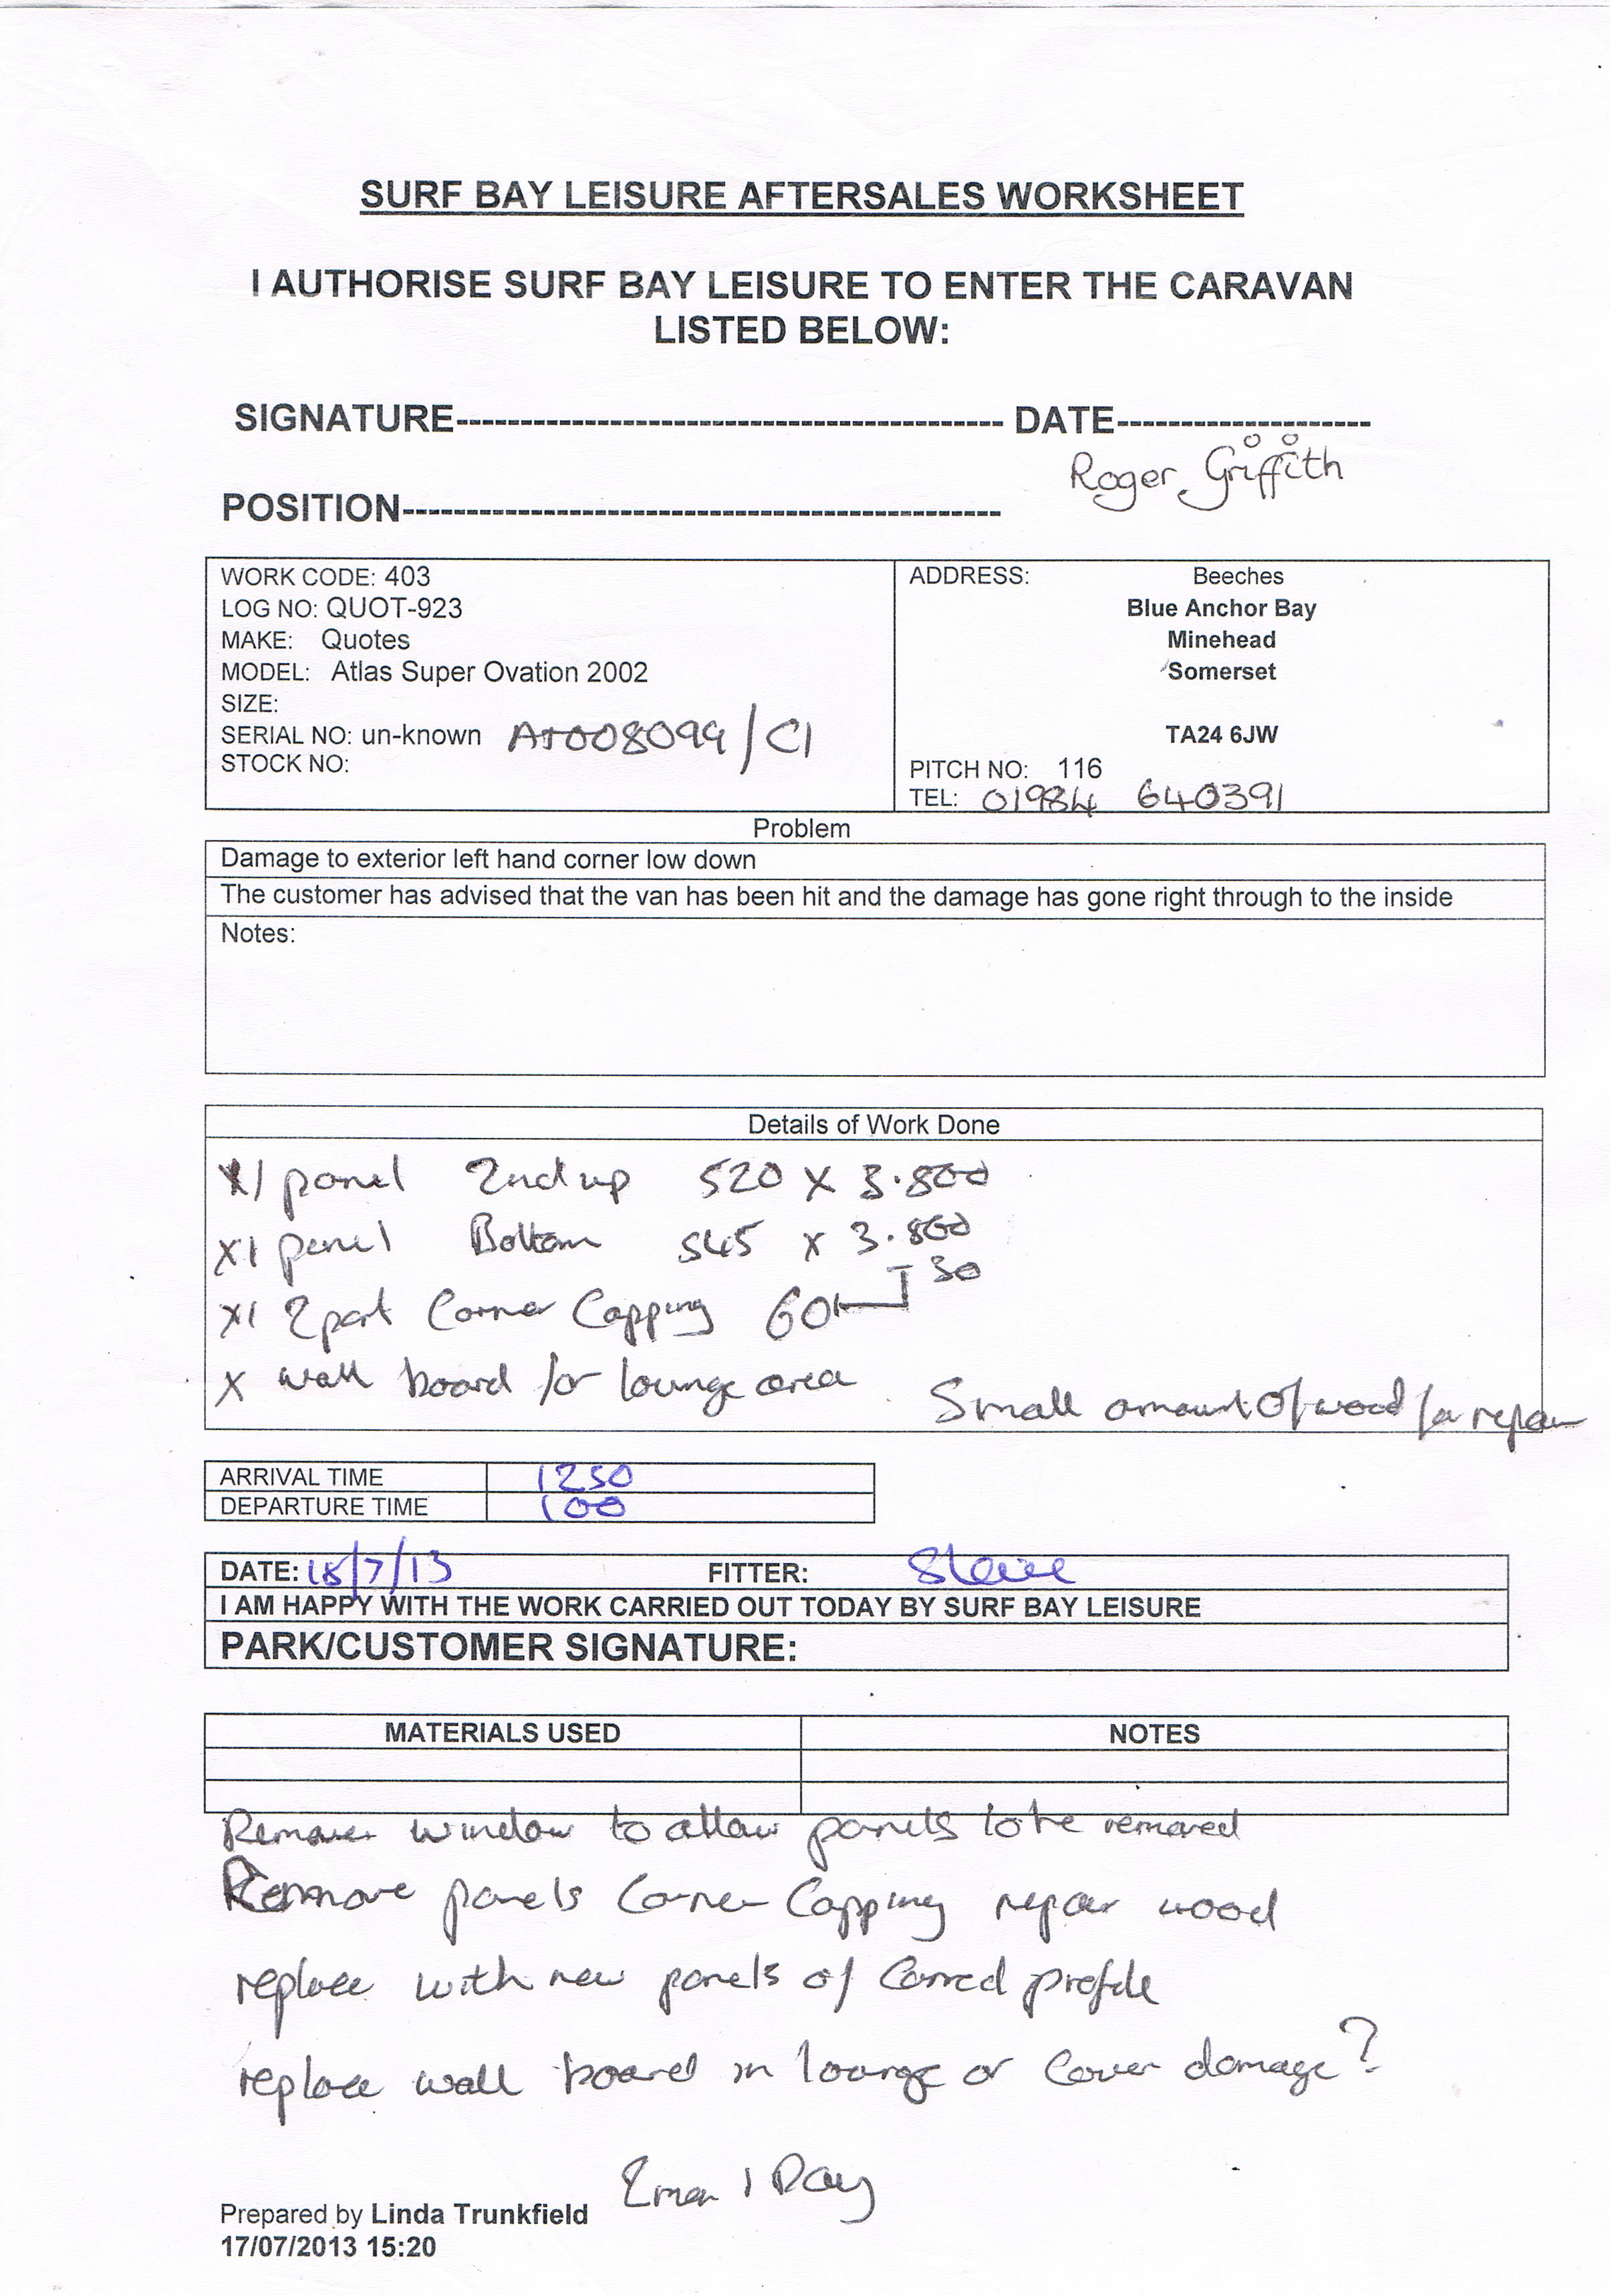 SURF BAY LEISURE AFTERSALES WORKSHEET
I AUTHORISE SURF BAY LEISURE TO ENTER THE CARAVAN
LISTED BELOW:
SIGNATURE------------------------------------------- DATE--------------------
Roger Griffith
POSITION-----------------------------------------------
WORK CODE: 403
LOG NO: QUOT-923
MAKE: Quotes
MODEL: Atlas Super Ovation 2002
SIZE:
SERIAL NO: un-known AT008099/C1
STOCK NO:
ADDRESS: Beeches
Blue Anchor Bay
Minehead
Somerset
TA24 6JW
PITCH NO: 116
TEL: 01984 640391
Problem
Damage to exterior left hand corner low down
The customer has advised that the van has been hit and the damage has gone right through to the inside
Notes:
Details of Work Done
X1 panel 2nd up 520 x 3.800
X1 panel Bottom 545 x 3.800
X1 2 part Corner Capping 60 30
X wall board for lounge area
Small amount of wood for repair
ARRIVAL TIME 1250
DEPARTURE TIME 100
DATE: 18/7/13 FITTER: Steve
I AM HAPPY WITH THE WORK CARRIED OUT TODAY BY SURF BAY LEISURE
PARK/CUSTOMER SIGNATURE:
MATERIALS USED NOTES
Remove window to allow panels to be removed
Remove panels Corner Capping repair wood
replace with new panels of Correct profile
replace wall board in lounge or Cover damage?
2 man 1 Day
Prepared by Linda Trunkfield
17/07/2013 15:20